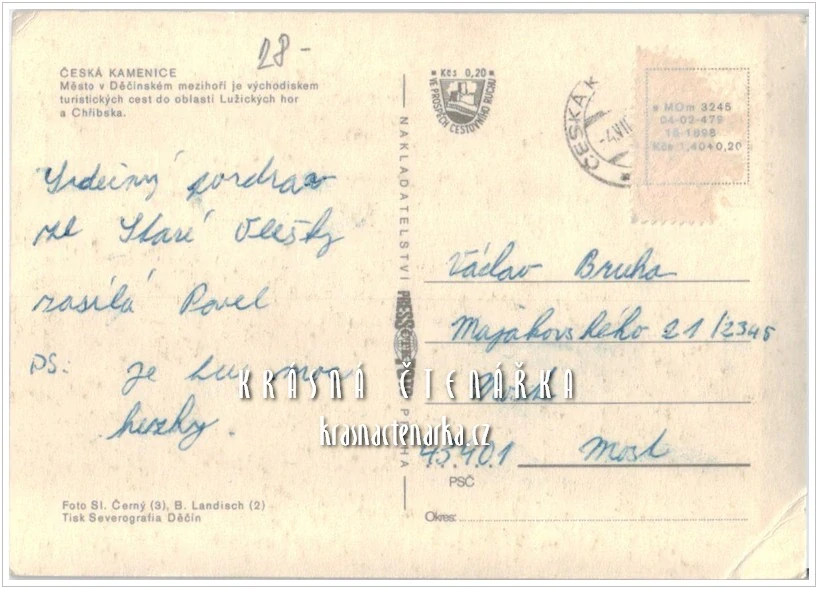 28-
ČESKÁ KAMENICE
Město v Děčínském mezihoří je východiskem
turistických cest do oblasti Lužických hor
a Chřibska.
Srdečný pozdrav
ze Staré Olešky
zasílá Pavel
PS: je tu moc
hezky.
Foto Sl. Černý (3), B. Landisch (2)
Tisk Severografia Děčín
NAKLADATELSTVÍ PRESSFOTO PRAHA
Kčs 0,20
VE PROSPĚCH CESTOVNÍHO RUCHU
ČESKÁ K
-4.VII
MOm 3245
04-02-479
15-1898
Kčs 1,40+0,20
Václav Bruha
Majakovského 21/2345
Most
43401 Most
PSČ
Okres:
KRÁSNÁ ČTENÁŘKA
krasnactenarka.cz